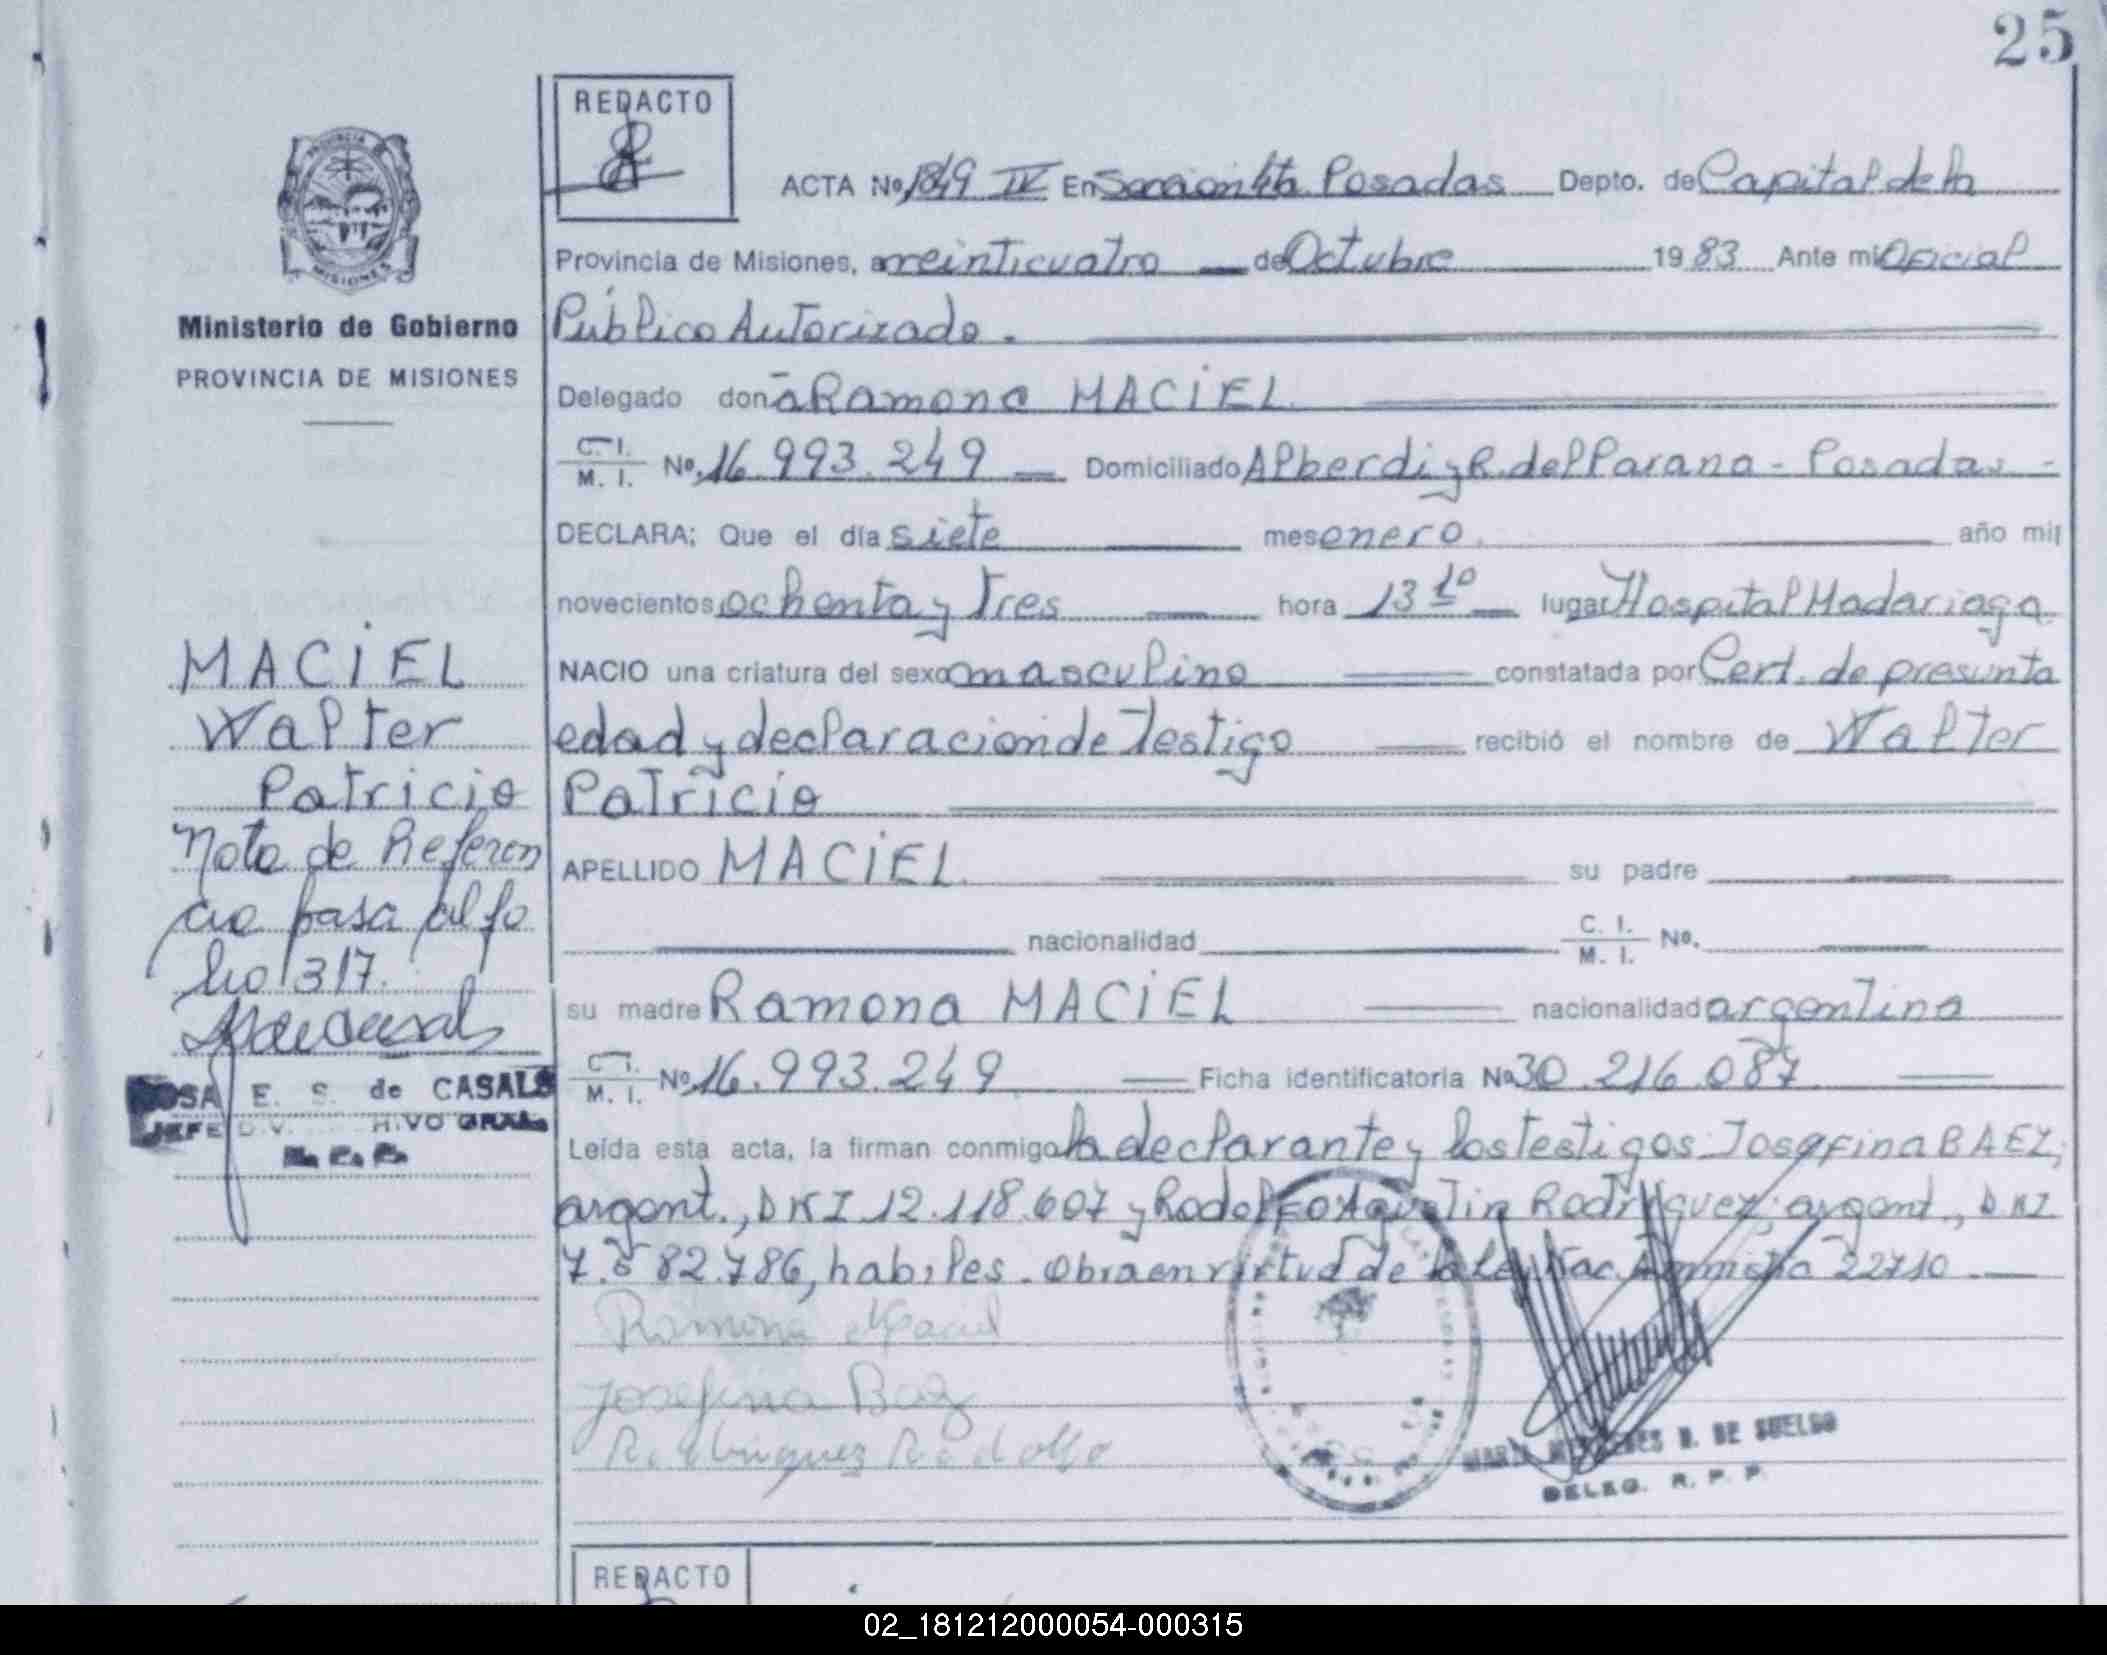 25
REDACTO
ACTA No 1849 IV En Sección 4ta Posadas Depto. de Capital de la
PROVINCIA DE
MISIONES
Provincia de Misiones, a veinticuatro de Octubre 1983 Ante mi Oficial
Ministerio de Gobierno
Público Autorizado.
PROVINCIA DE MISIONES
Delegado doña Ramona MACIEL
C. I. M. I. No. 16.993.249 Domiciliado Alberdi y R. del Parana - Posadas -
DECLARA; Que el día siete mes enero año mil
novecientos ochenta y Tres hora 13 10 lugar Hospital Madariaga
MACIEL
NACIO una criatura del sexo masculino constatada por Cert. de presunta
Walter
edad y declaración de Testigo recibió el nombre de Walter
Patricio
Patricio
Nota de Referen
APELLIDO MACIEL su padre
cia pasa al fo
nacionalidad C. I. M. I. No.
lio 317.
su madre Ramona MACIEL nacionalidad argentina
C. I. M. I. No 16.993.249 Ficha identificatoria No 30.216.087
E. S. de CASALS
JEFE
Leída esta acta, la firman conmigo la declarante y los testigos: Josefina BAEZ,
argent., DNI 12.118.607 y Rodolfo Agustin Rodriguez, argent., DNI
7.582.786, habiles. Obra en virtud de la Ley Nac. Amnistia 22710
Ramona Maciel
Josefina Baez
Rodriguez Rodolfo
DE SUELDO
DELEG. R. P. P.
REDACTO
02_181212000054-000315